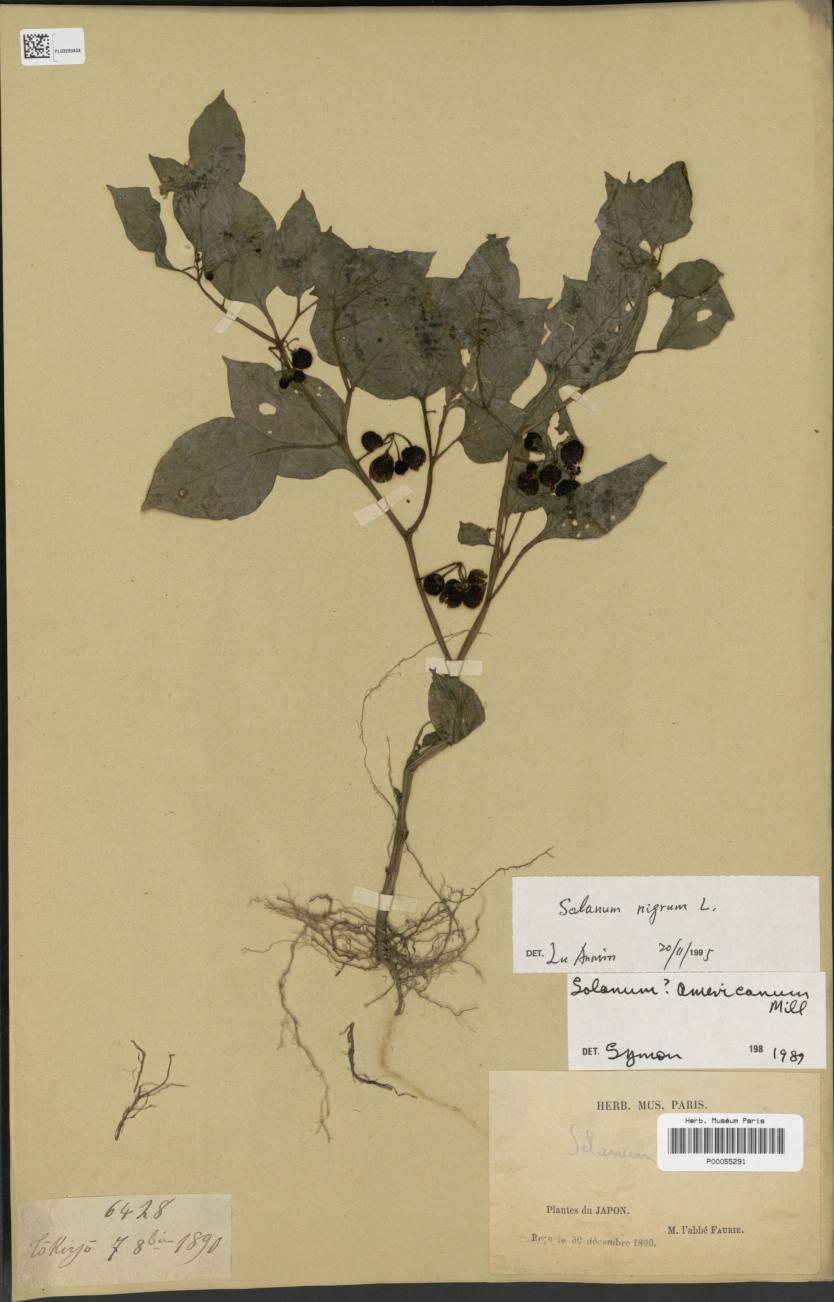 Solanum nigrum L.
DET. Lu Anmin 20/11/1995
Solanum? americanum
Mill
DET. Symon 198 1989
HERB. MUS. PARIS.
Herb. Muséum Paris
P00055291
Solanum
Plantes du JAPON.
M. l'abbé FAURIE.
Reçu le 30 décembre 1890.
6428
7 8bre 1890